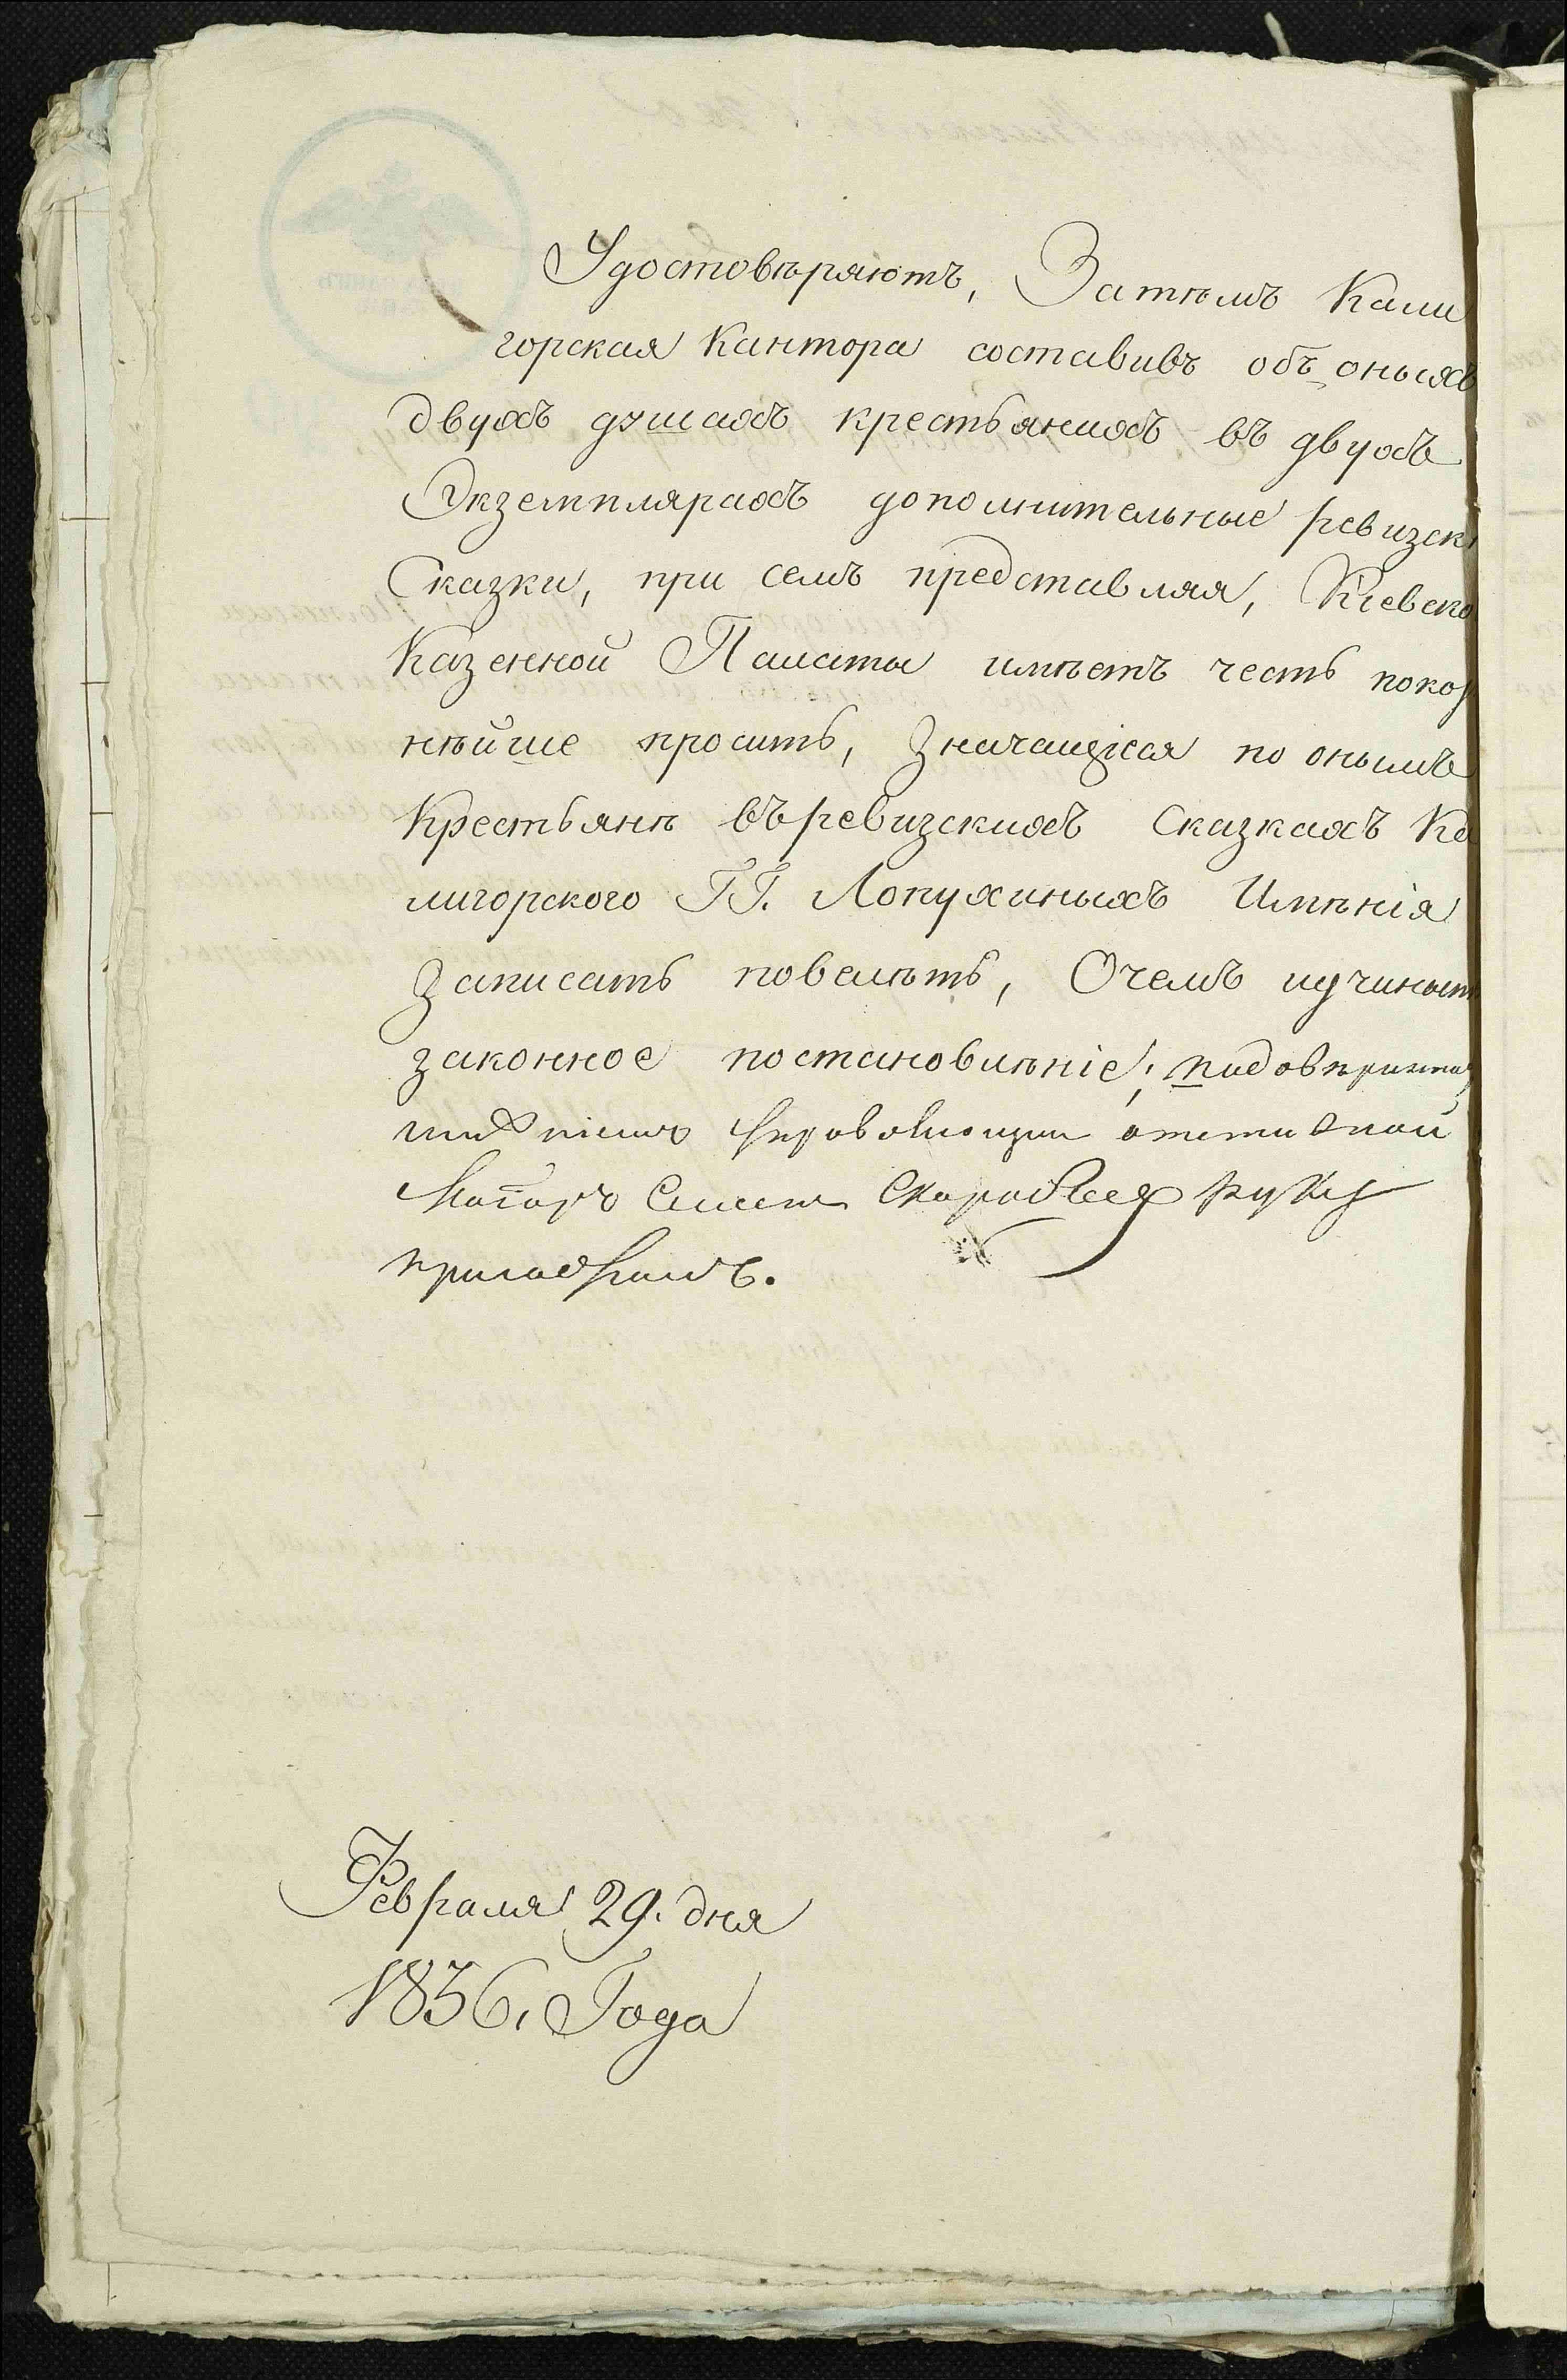 Удостовѣряютъ, Затѣмъ Кали
горская Кантора составивъ объ оныхъ
двухъ душахъ крестьянихъ въ двухъ
Экземплярахъ дополнительные ревизск
Сказки, при семъ представляя, Кіевско
Казенной Палаты имѣетъ честь покор
нѣйше просить, Значащіхся по онымъ
Крестьянъ въ ревизскихъ Сказкахъ Ка
лигорского ГГ. Лопухиныхъ Имѣнія
Записать повелѣть, О чемъ и учинить
законное постановлѣніе;
управляющии отставной
Маіоръ руку
приложилъ.
Февраля 29. дня
1836, Года